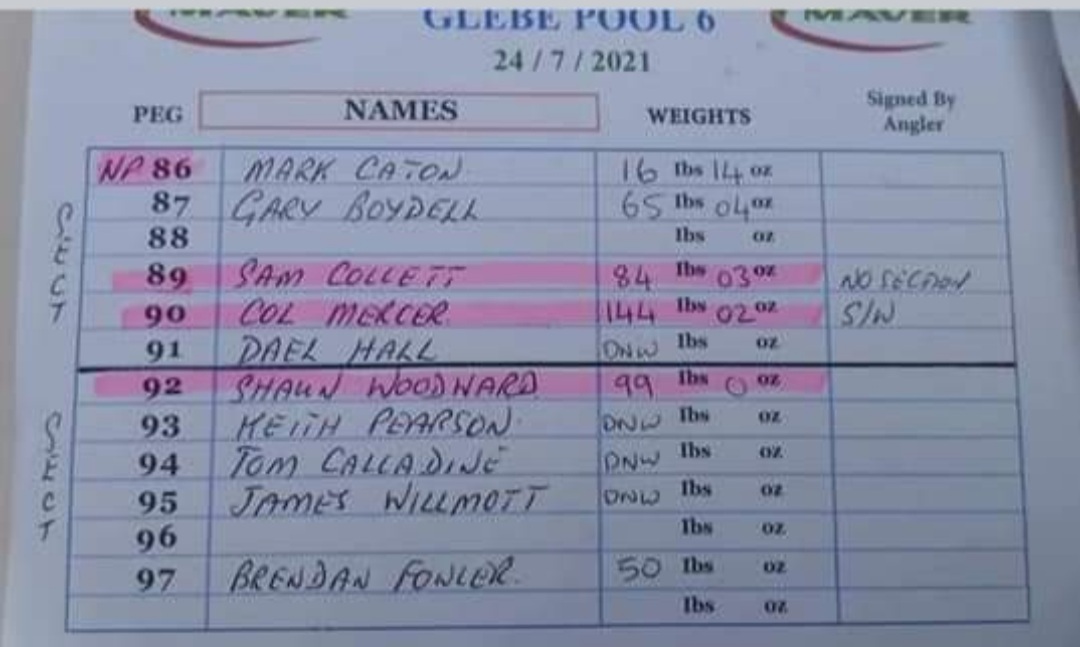 MAVER GLEBE POOL 6 MAVER
24 / 7 / 2021
PEG NAMES WEIGHTS Signed By Angler
NP 86 MARK CATON 16 lbs 14 oz
87 GARY BOYDELL 65 lbs 04 oz
88 lbs oz
89 SAM COLLETT 84 lbs 03 oz NO SECTION
90 COL MERCER 144 lbs 02 oz S/W
91 DAEL HALL DNW lbs oz
92 SHAUN WOODWARD 99 lbs 0 oz
93 KEITH PEARSON DNW lbs oz
94 TOM CALLADINE DNW lbs oz
95 JAMES WILLMOTT DNW lbs oz
96 lbs oz
97 BRENDAN FOWLER 50 lbs oz
lbs oz
SECT
SECT